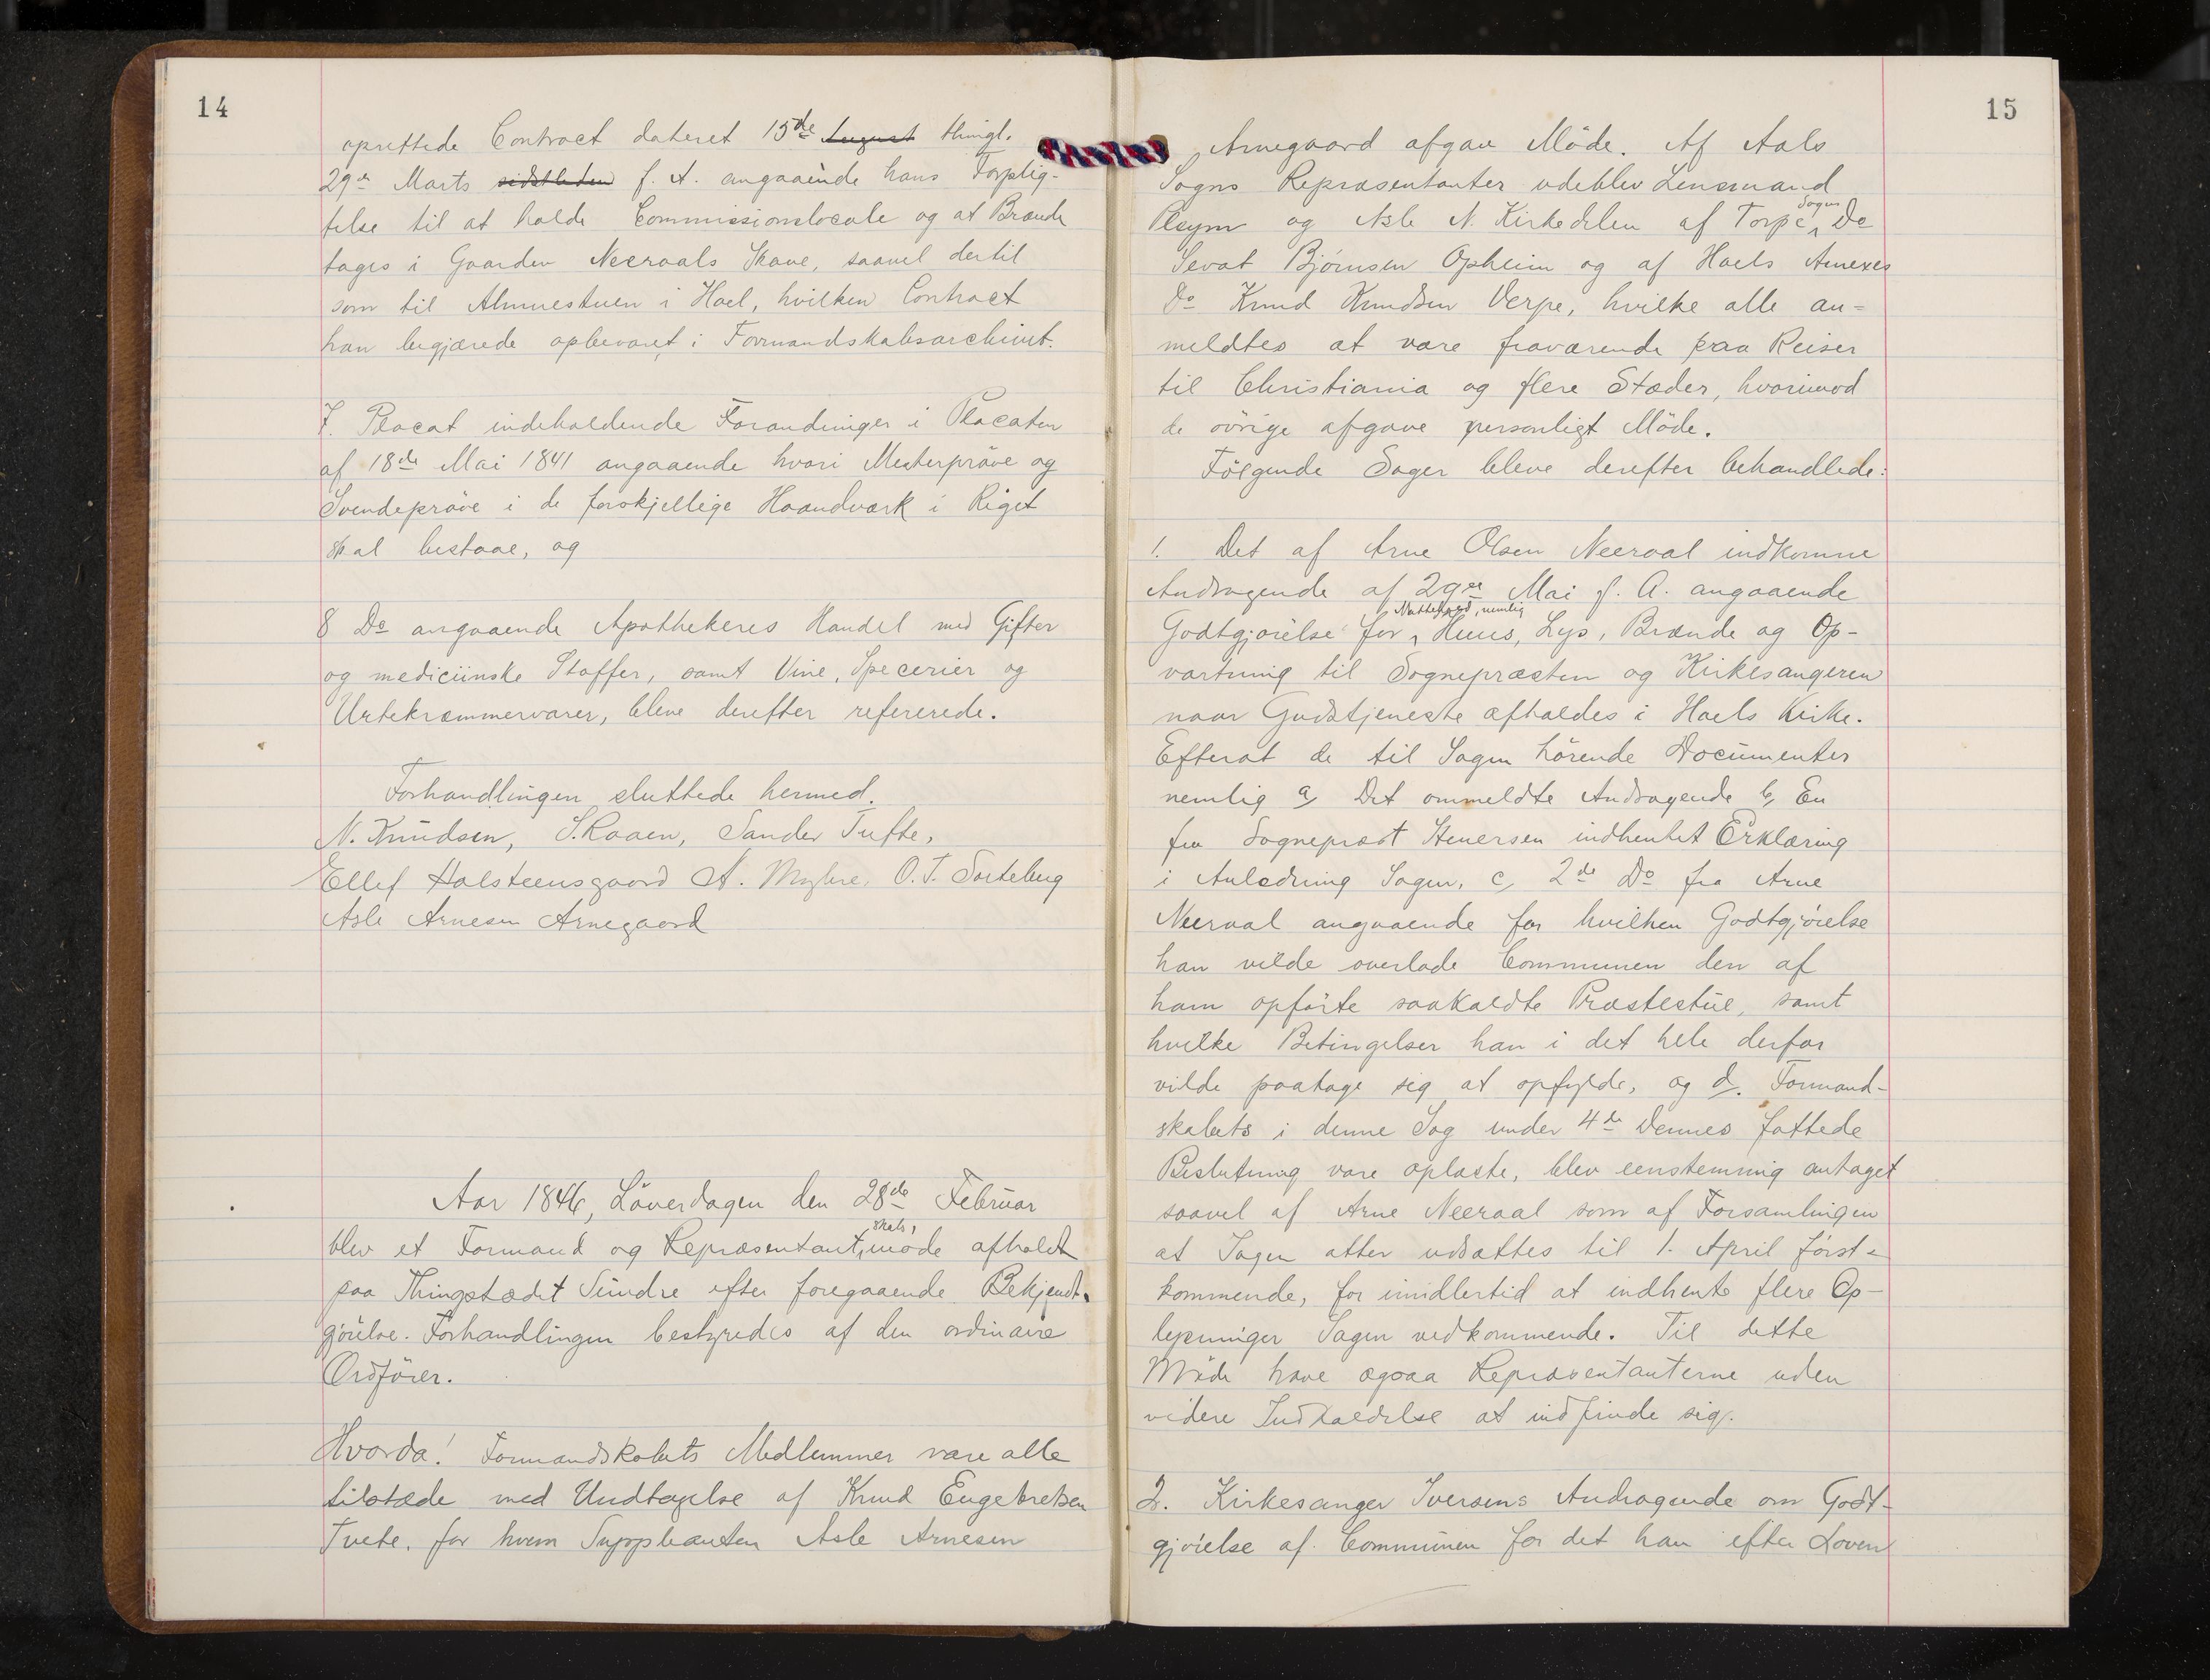 14
oprettede Contract dateret 15de August thingl.
29de Marts sidstleden f. A. angaaende hans Forplig-
telse til at holde Commissionslocale og at Brænde
tages i Gaarden Neeraals Skove, saavel dertil
som til Almuestuen i Hoel, hvilken Contract
han begjærede opbevaret i Formandskabsarchivet.
7. Placat indeholdende Forandringer i Placaten
af 18de Mai 1841 angaaende hvori Mesterprøve og
Svendeprøve i de forskjellige Haandværk i Riget
skal bestaae, og
8 Do angaaende Apothekeres Handel med Gifter
og mediciinske Stoffer, samt Vine, Specerier og
Urtekræmmervarer, bleve derefter refererede.
Forhandlingen sluttede hermed.
N. Knudsen, S. Raaen, Sander Tufte,
Ellef Halsteensgaard A. Myhre, O. T. Sorteberg
Asle Arnesen Arnegaard
Aar 1846, Löverdagen den 28de Februar
blev et Formand og Repræsentantskabs, möde afholdt
paa Thingstædet Sundre efter foregaaende Bekjendt-
gjörelse. Forhandlingen bestyredes af den ordinaire
Ordförer.
Hvorda! Formandskabets Medlemmer vare alle
tilstæde med Undtagelse af Knud Engebretsen
Tvete, for hvem Suppleanten Asle Arnesen
15
Arnegaard afgav Möde. Af Aals
Sogns Repræsentanter udeblev Lensmand
Plesym og Asle N. Kirkedelen af Torpe Sogns Do
Sevat Bjørnsen Opheim og af Hoels Annexes
Do Knud Knudsen Verpe, hvilke alle an-
meldtes at være fraværende paa Reiser
til Christiania og flere Stæder, hvorimod
de övrige afgave personligt Möde.
Fölgende Sager bleve derefter behandlede:
1. Det af Arne Olsen Neeraal indkomne
Andragende af 29de Mai f. A. angaaende
Godtgjörelse for Nattehold, nemlig Huus, Lys, Brænde og Op-
vartning til Sognepræsten og Kirkesangeren
naar Gudstjeneste afholdes i Hoels Kirke.
Efterat de til Sagen hörende Documenter
nemlig a, Det ommeldte Andragende b, En
fra Sognepræst Stenersen indhentet Erklæring
i Anledning Sagen, c, 2de Do fra Arne
Neeraal angaaende for hvilken Godtgjörelse
han vilde overlade Communen den af
ham opförte saakaldte Præstestue, samt
hvilke Betingelser han i det hele derfor
vilde paatage sig at opfylde, og d. Formand-
skabets i denne Sag under 4de Dennes fattede
Beslutning vare oplæste, blev eenstemmig antaget
saavel af Arne Neeraal som af Forsamlingen
at Sagen atter udsættes til 1. April först-
kommende, for imidlertid at indhente flere Op-
lysninger Sagen vedkommende. Til dette
Möde have ogsaa Repræsentanterne uden
videre Indkaldelse at indfinde sig.
2. Kirkesanger Iversens Andragende om Godt-
gjörelse af Communen for det han efter Loven